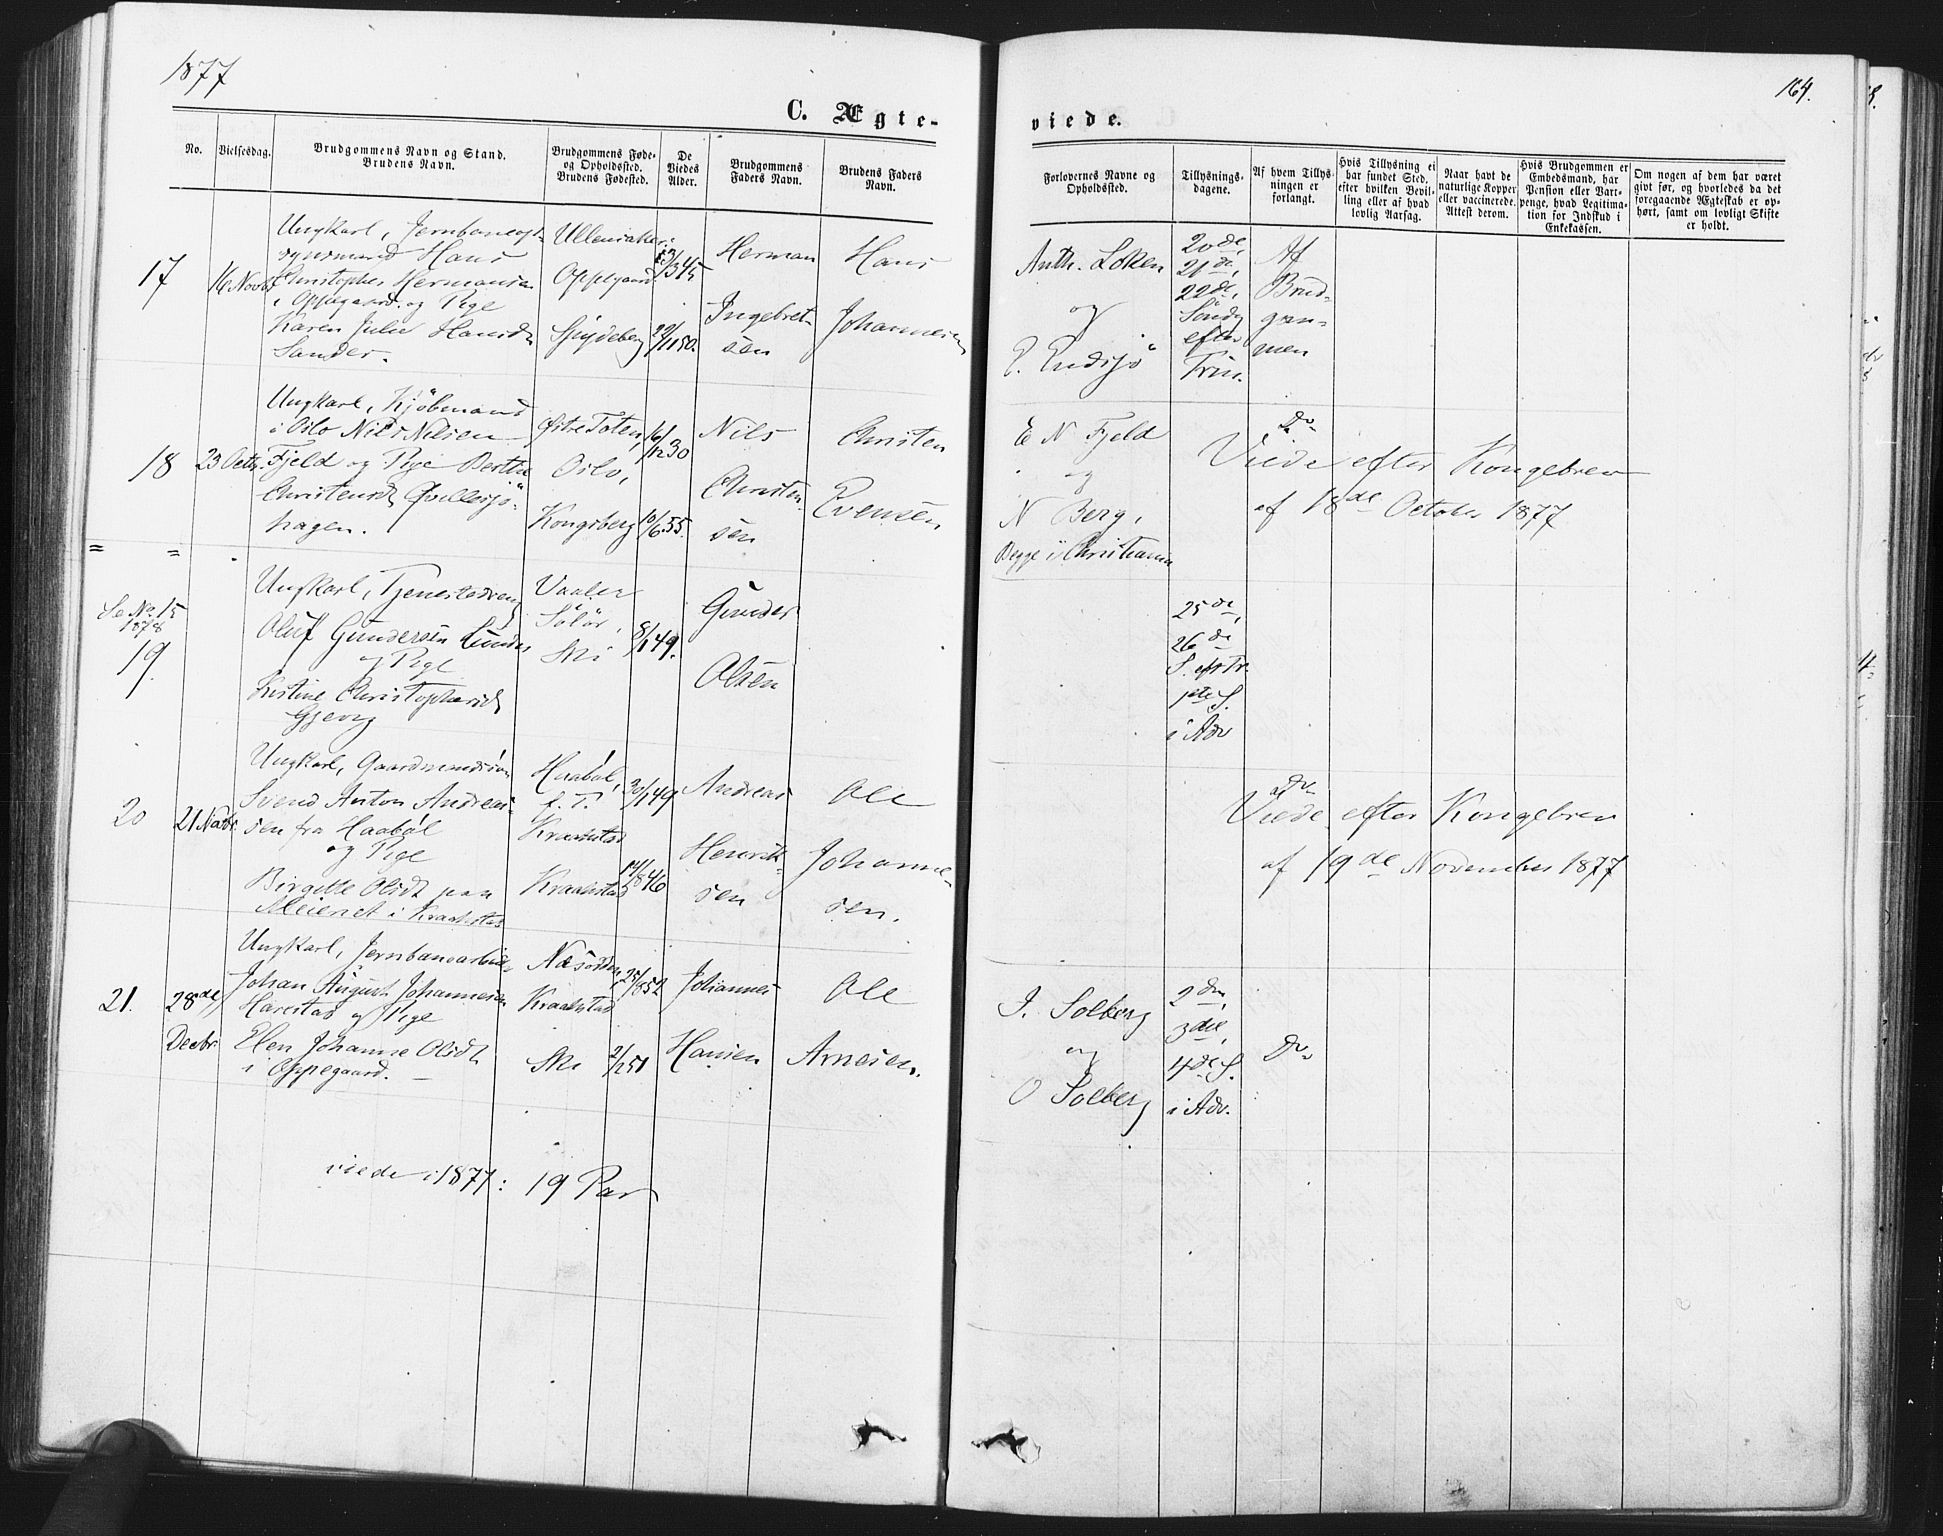 1877
164.
C. Ægte-
viede.
No.
Vielsesdag.
Brudgommens Navn og Stand.
Brudens Navn.
Brudgommens Føde-
og Opholdssted.
Brudens Fødested.
De
Viedes
Alder.
Brudgommens
Faders Navn.
Brudens Faders
Navn.
Forlovernes Navne og
Opholdssted.
Tillysnings-
dagene.
Af hvem Tillys-
ningen er
forlangt.
Hvis Tillysning ei
har fundet Sted,
efter hvilken Bevil-
ling eller af hvad
lovlig Aarsag.
Naar havt de
naturlige Kopper
eller vaccinerede.
Attest derom.
Hvis Brudgommen er
Embedsmand, har
Pension eller Vart-
penge, hvad Legitima-
tion for Indskud i
Enkekassen.
Om nogen af dem har været
givt før, og hvorledes da det
foregaaende Ægteskab er op-
hørt, samt om lovligt Skifte
er holdt.
17
16 Novbr
Ungkarl, Jernbaneop-
synsmand Hans
Christopher Hermansen
i Oppegaard og Pige
Karen Julie Hansdt
Sander.
Ullensaker:
Oppegaard
Spydeberg
/345
29/1150.
Herman
Ingebret-
sen
Hans
Johannesen
Anth. Loken
og
E. Endsjö
20de,
21de,
22de,
Söndg
efter
Trin.
Af
Brud-
gom-
men
18
23 Octbr.
Ungkarl, Kjöbmand
i Oslo Nils Nilsen
Fjeld og Pige Berthe
Christensdt Qvillesjö-
hagen.
Østre Toten,
Oslo,
Kongsberg
16/1230
10/655.
Nils
Christen-
sen
Christen
Evensen
E N Fjeld
og
N Berg,
Begge i Christiania
Do
Viede efter Kongebrev
af 18de October 1877
= =
Se No 15
1878
19.
Ungkarl, Tjenestedreng
Oluf Gundersen Lunder
og Pige
Kistine Christophersdt
Gjevig
Vaaler
Sölör,
Ski
8/149.
Gunder
Olsen
25de,
26de
S. eft Tr.
1ste S.
i Adv
20
21 Novbr.
Ungkarl, Gaardmandssön
Svend Anton Andrea-
sen fra Haaböl
og Pige
Birgitte Olsdt paa
Meieriet i Kraakstad
Haaböl,
f. T.
Kraakstad
Kraakstad
30/149
14/846
Andreas
Henrik-
sen
Ole
Johanne-
sen.
Do
Viede efter Kongebrev
af 19de November 1877
21.
28de
Decbr
Ungkarl, Jernbanearbeider
Johan August Johannesen
Harestad og Pige
Elen Johanne Olsdt
i Oppegaard.
Næsodden,
Kraakstad
Ski
25/852
2/1251
Johannes
Hansen
Ole
Arnesen.
J. Solberg
og
O Solberg
2den,
3die,
4de S.
i Adv.
Do
viede i 1877: 19 Par